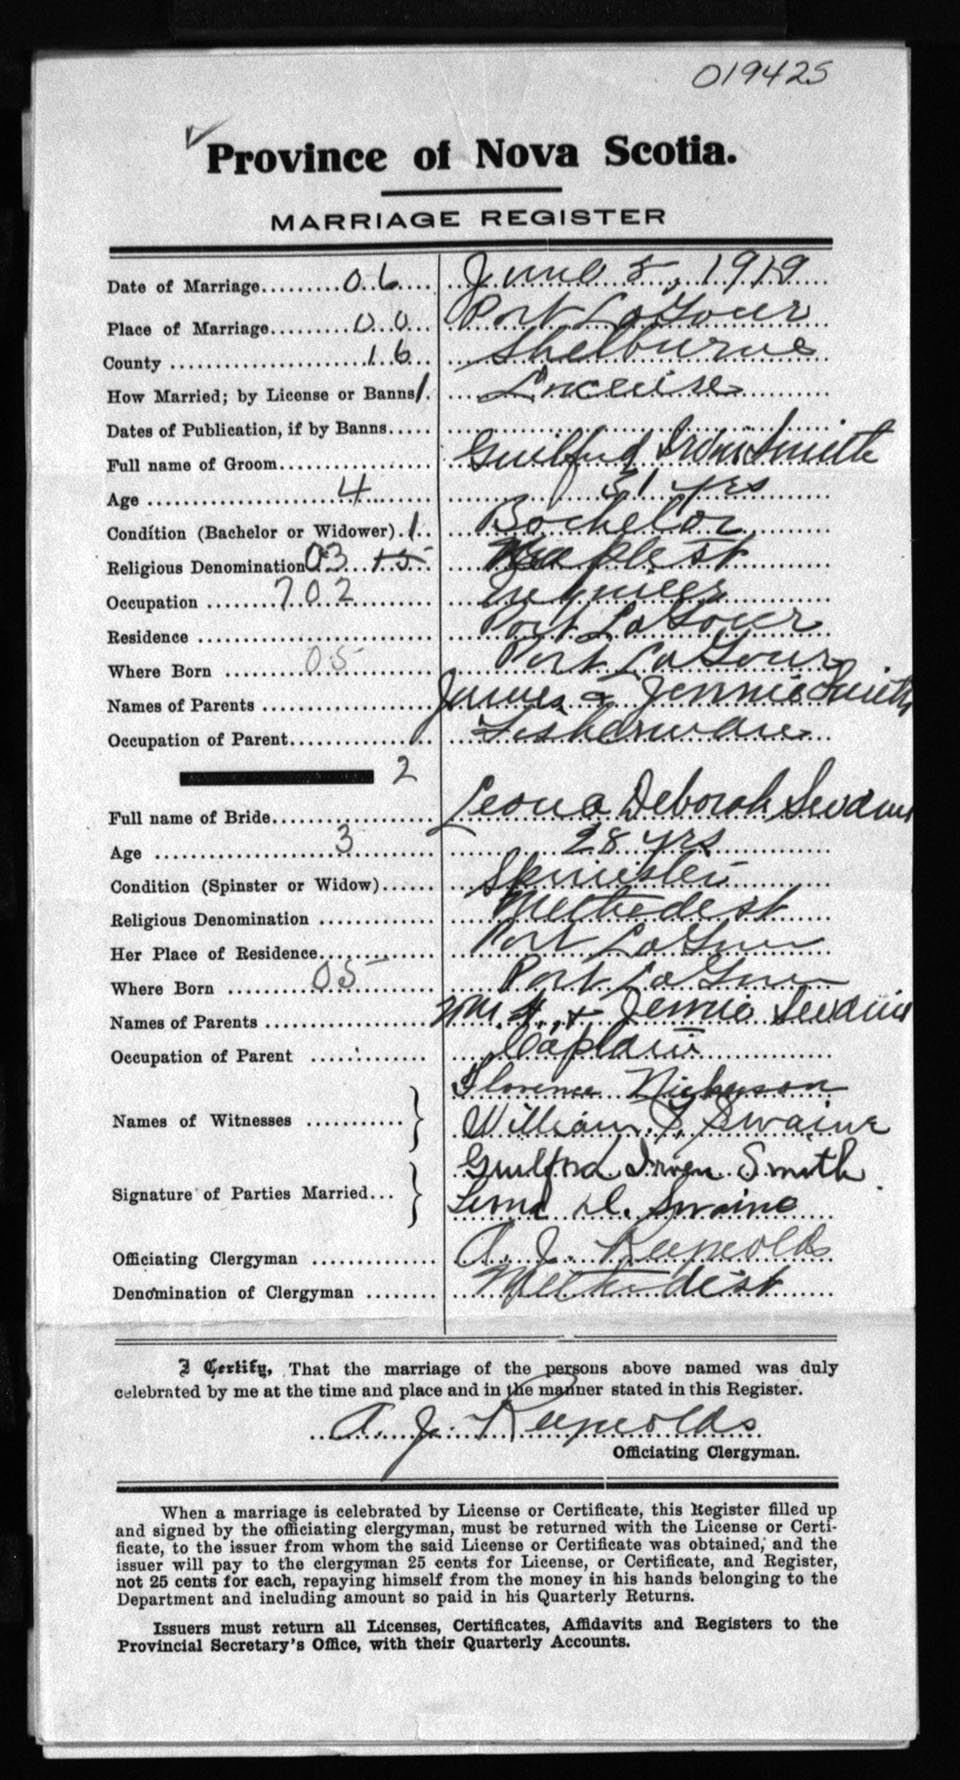 019425
Province of Nova Scotia.
MARRIAGE REGISTER
Date of Marriage 06 June 5, 1919
Place of Marriage 00 Port LaTour
County 16 Shelburne
How Married; by License or Banns 1. License
Dates of Publication, if by Banns
Full name of Groom Guilford Irvin Smith
Age 4 31 yrs
Condition (Bachelor or Widower) 1 Bachelor
Religious Denomination 03 15 Baptist
Occupation 702 Engineer
Residence Port LaTour
Where Born 05 Port LaTour
Names of Parents James & Jennie Smith
Occupation of Parent Fisherman
2
Full name of Bride Leona Deborah Swaine
Age 3 28 yrs
Condition (Spinster or Widow) Spinster
Religious Denomination Methodist
Her Place of Residence Port LaTour
Where Born 05 Port LaTour
Names of Parents Wm. H. & Jennie Swaine
Occupation of Parent Captain
Names of Witnesses Florence Nickerson
William S. Swaine
Signature of Parties Married Guilford Irven Smith
Leona D. Swaine
Officiating Clergyman A. J. Reynolds
Denomination of Clergyman Methodist
I Certify, That the marriage of the persons above named was duly
celebrated by me at the time and place and in the manner stated in this Register.
A. J. Reynolds
Officiating Clergyman.
When a marriage is celebrated by License or Certificate, this Register filled up
and signed by the officiating clergyman, must be returned with the License or Certi-
ficate, to the issuer from whom the said License or Certificate was obtained, and the
issuer will pay to the clergyman 25 cents for License, or Certificate, and Register,
not 25 cents for each, repaying himself from the money in his hands belonging to the
Department and including amount so paid in his Quarterly Returns.
Issuers must return all Licenses, Certificates, Affidavits and Registers to the
Provincial Secretary's Office, with their Quarterly Accounts.